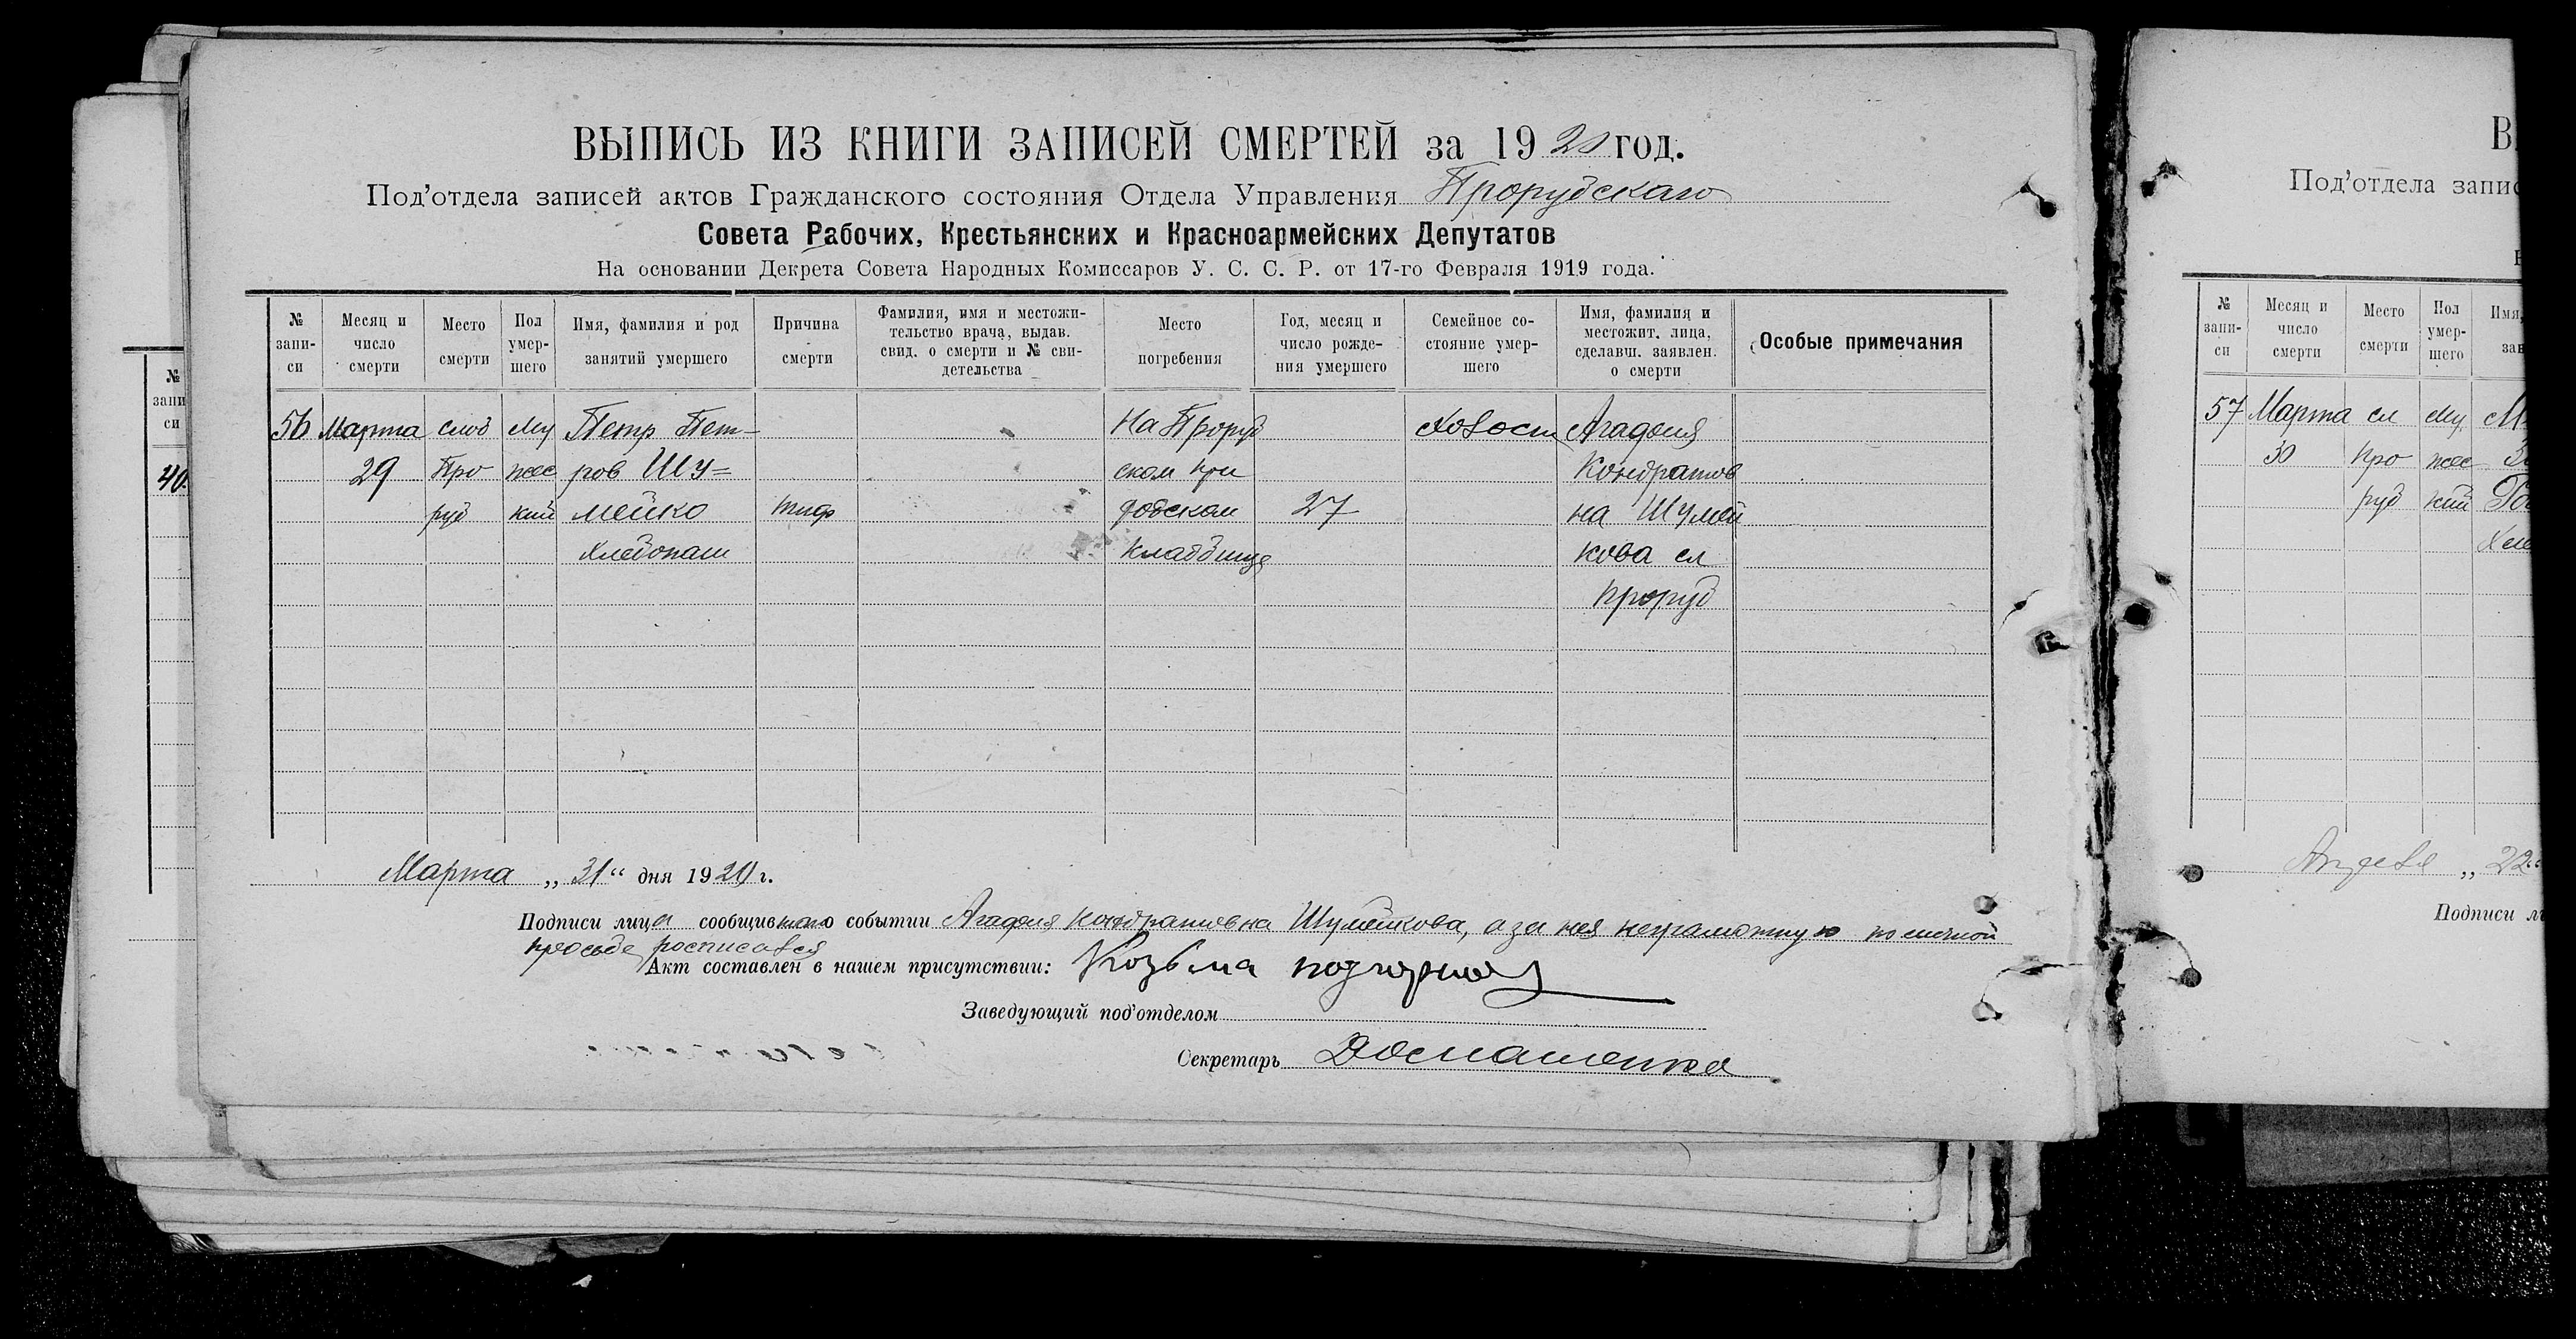 ВЫПИСЬ ИЗ КНИГИ ЗАПИСЕЙ СМЕРТЕЙ за 1920 год.
Под'отдела записей актов Гражданского состояния Отдела Управления Прорубскаго
Совета Рабочих, Крестьянских и Красноармейских Депутатов
На основании Декрета Совета Народных Комиссаров У. С. С. Р. от 17-го Февраля 1919 года.
№ запи- си
Месяц и число смерти
Место смерти
Пол умер- шего
Имя, фамилия и род занятий умершего
Причина смерти
Фамилия, имя и местожи- тельство врача, выдав. свид. о смерти и № сви- детельства
Место погребения
Год, месяц и число рожде- ния умершего
Семейное со- стояние умер- шего
Имя, фамилия и местожит. лица, сделавш. заявлен. о смерти
Особые примечания
56 Марта слоб Му Петр Пет- На Проруб Холост Агафия
29 Про жес ров Шу= ском при Кондратов
руб кий мейко тиф ходском 27 на Шумей
Хлебопаш кладбище кова сл
Проруб
Марта „31“ дня 1920 г.
Подписи лица сообщившаго о событии Агафия Кондратовна Шумейкова, а за нея неграмотную по личной
просьбе росписався
Акт составлен в нашем присутствии: Козьма
Заведующий под'отделом
Секретарь
№
запи
си
40
В
Под'отдела запис
№ запи- си
Месяц и число смерти
Место смерти
Пол умер- шего
Имя,
зан
57 Марта сл Му
30 Про жес
руб кий
Хле
„22“
Подписи л